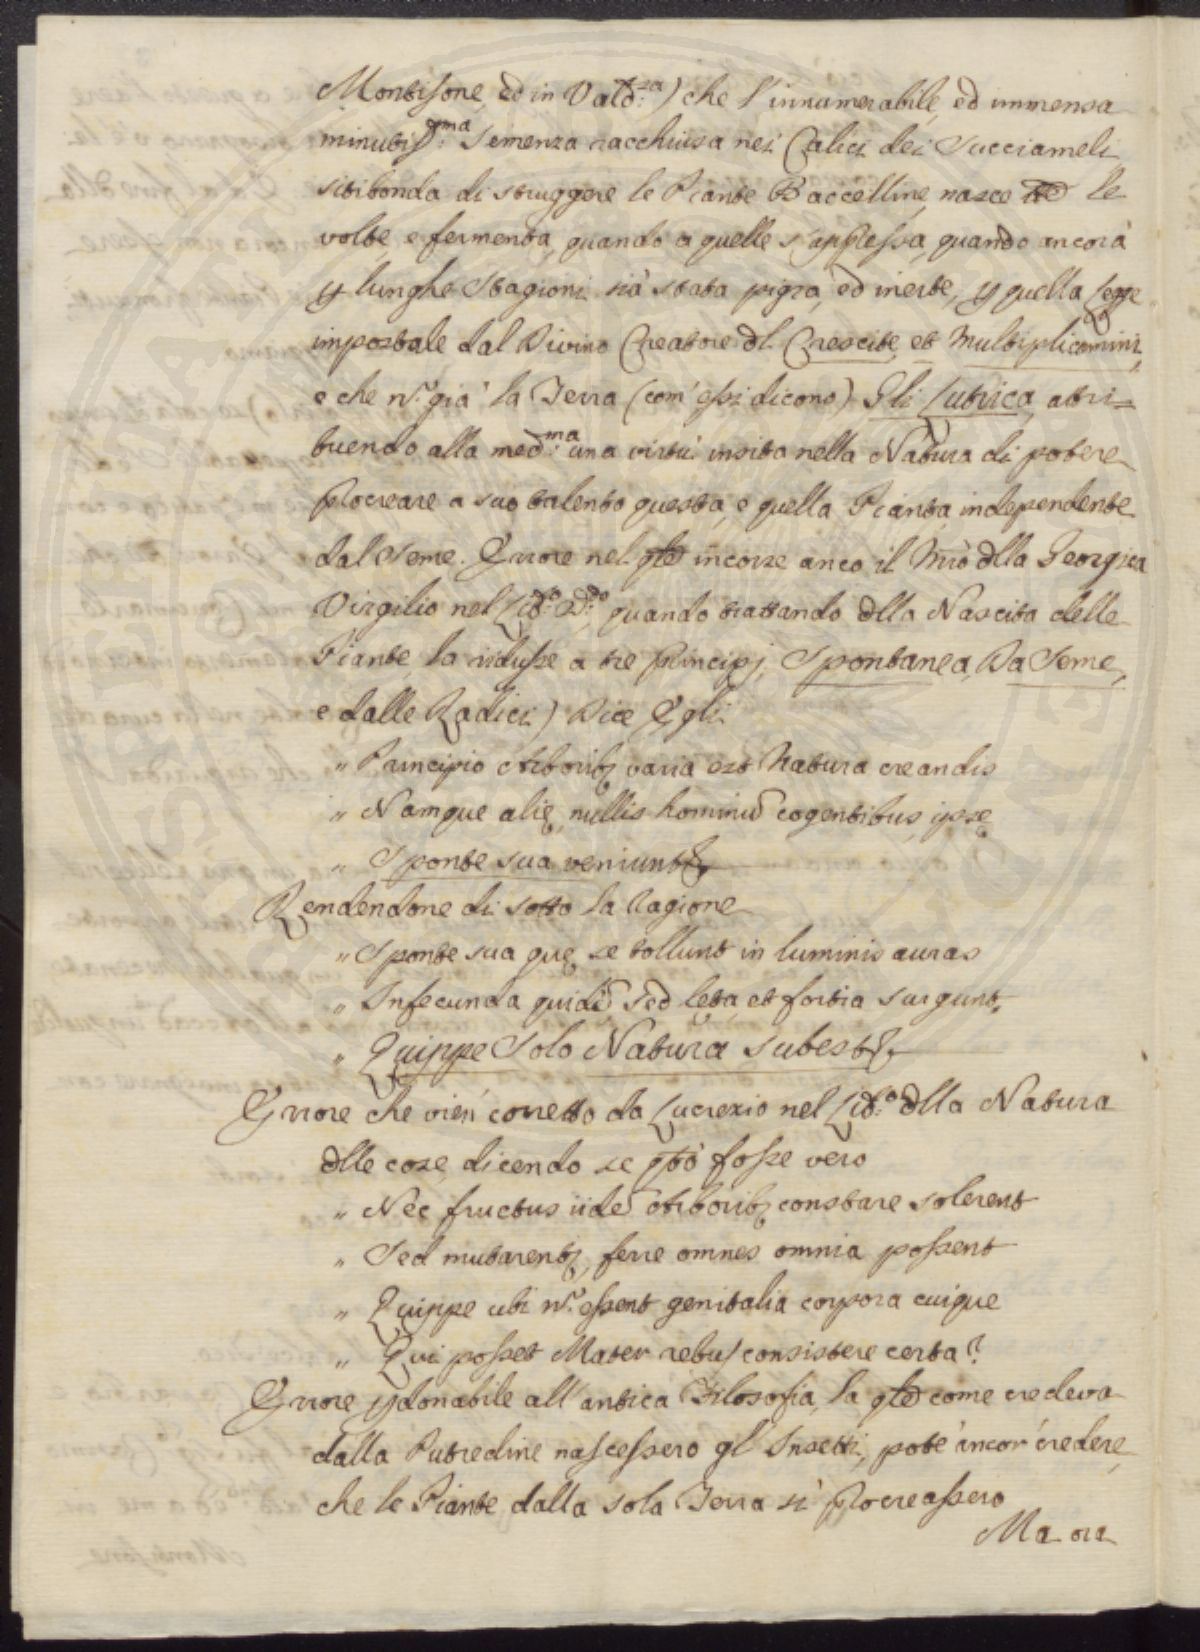 Montisone, ed in Vald:za) che l'innumerabile, ed immensa
minutiss:ma Semenza racchiusa nei Calici dei Succiameli
sitibonda di struggere le Piante Baccelline, nasce tte le
volte, e fermenta, quando a quelle s'appressa, quando ancora
p lunghe Stagioni sia stata pigra, ed inerte, p quella Legge
impostale dal Divino Creatore dl. Crescite, et Multiplicamini,
e che n. già la Terra (com' essi dicono) Gli Lubrica, attri=
buendo alla med:ma una virtù insita nella Natura di potere
Procreare a suo talento questa, e quella Pianta, independente
dal Seme. Errore nel qle incorse anco il Mro dlla Georgica
Virgilio nel Lib:o 2:do, quando trattando dlla Nascita delle
Piante, la ridusse a tre Principj, Spontanea, Da Seme,
e dalle Radici) Dice Egli
" Principio Arborib; varia est Natura creandis
" Namque alię, nullis hominũ cogentibus, ipsę
" Sponte sua veniunt &
Rendendone di sotto la Ragione
" Sponte sua quę se tollunt in luminis auras
" Infecunda quidẽ, sed lęta, et fortia surgunt.
" Quippe Solo Natura subest &
Errore che vien corretto da Lucrezio nel Lib:o dlla Natura
dlle cose, dicendo se qto fosse vero
" Nec fructus iidẽ Arborib; constare solerent
" Sed mutarent;, ferre omnes omnia possent
" Quippe ubi n. essent genitalia corpora cuique
" Qui posset Mater rebus consistere certa?
Errore pdonabile all' antica Filosofia, la qle come credeva
dalla Putredine nascessero gl' Insetti, potè ancor credere,
che le Piante dalla sola Terra si Procreassero
Ma ora